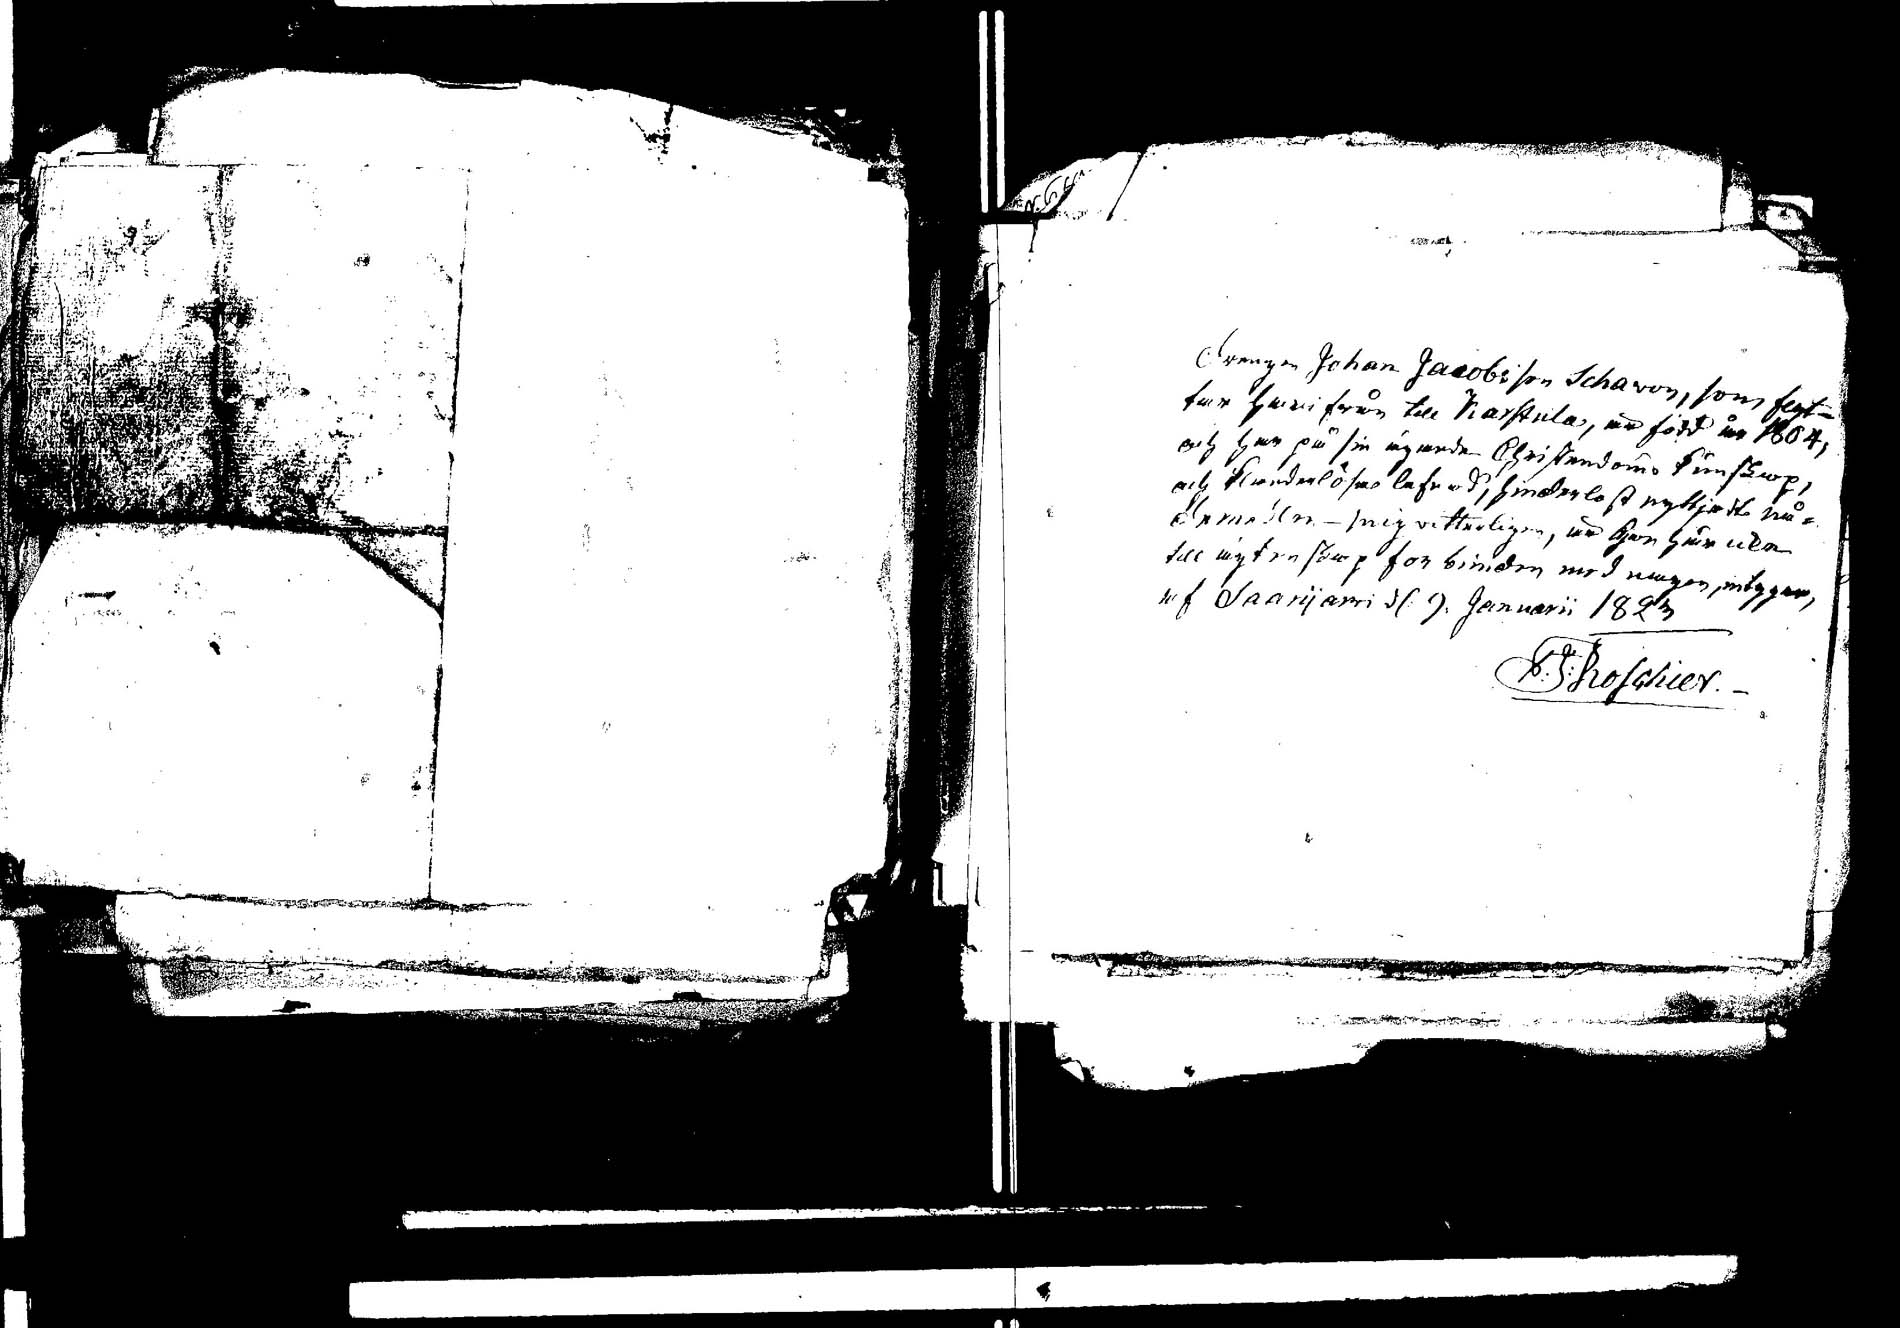 Drengen Johan Jacobsson Schavon, som flyt-
tar härifrån till Karstula, är född år 1804,
och har på sin ägande Christendoms kunskap,
och klanderlösa lefnad, hinderlöst nyttjadt nå-
demedlen - mig vitterligen, är han här icke
till ägtenskap förbunden med någon, intygar,
af Saarijarvi d. 9. Januarii 1823
Roschier.